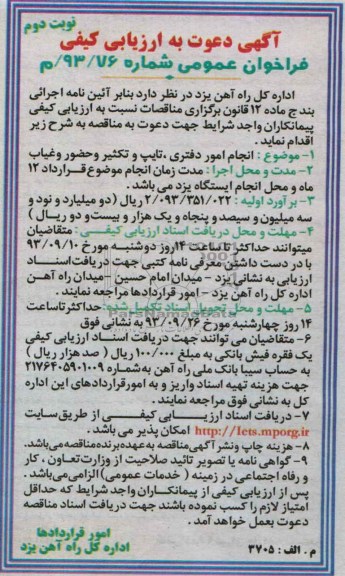 نوبت دوم
آگهی دعوت به ارزیابی کیفی
فراخوان عمومی شماره ۹۳/۷۶/م
اداره کل راه آهن یزد در نظر دارد بنابر آئین نامه اجرائی
بند ج ماده ۱۲ قانون برگزاری مناقصات نسبت به ارزیابی کیفی
پیمانکاران واجد شرایط جهت دعوت به مناقصه به شرح زیر
اقدام نماید .
۱- موضوع : انجام امور دفتری ، تایپ و تکثیر وحضور وغیاب
۲- مدت و محل اجرا : مدت زمان انجام موضوع قرارداد ۱۲
ماه و محل انجام ایستگاه یزد می باشد .
۳- بر آورد اولیه : ۲/۰۹۳/۳۵۱/۰۲۲ ریال ( دو میلیارد و نود و
سه میلیون و سیصد و پنجاه و یک هزار و بیست و دو ریال )
۴- مهلت و محل دریافت اسناد ارزیابی کیفی : متقاضیان
میتوانند حداکثر تا ساعت ۱۴ روز دوشنبه مورخ ۹۳/۰۹/۱۰
با در دست داشتن معرفی نامه کتبی جهت دریافت اسناد
ارزیابی به نشانی یزد - میدان امام حسین - میدان راه آهن
اداره کل راه آهن یزد - امور قراردادها مراجعه نمایند .
۵- مهلت و محل تحویل اسناد تکمیل شده: حداکثر تاساعت
۱۴ روز چهارشنبه مورخ ۹۳/۰۹/۲۶ به نشانی فوق
۶- متقاضیان می توانند جهت دریافت اسناد ارزیابی کیفی
یک فقره فیش بانکی به مبلغ ۱۰۰/۰۰۰ ریال ( صد هزار ریال )
به حساب سیبا بانک ملی راه آهن به شماره ۲۱۷۶۴۰۵۹۰۱۰۰۹
جهت هزینه تهیه اسناد واریز و به امور قراردادهای این اداره
کل به نشانی فوق مراجعه نمایند .
۷- دریافت اسناد ارزیابی کیفی از طریق سایت
http://Iets.mporg.ir امکان پذیر می باشد .
۸- هزینه چاپ ونشر آگهی مناقصه به عهده برنده مناقصه می باشد.
۹- گواهی نامه یا تصویر تائید صلاحیت از وزارت تعاون ، کار
و رفاه اجتماعی در زمینه ( خدمات عمومی) الزامی می باشد .
پس از ارزیابی کیفی از پیمانکاران واجد شرایط که حداقل
امتیاز لازم را کسب نموده باشند جهت دریافت اسناد مناقصه
دعوت بعمل خواهد آمد .
امور قراردادها
اداره کل راه آهن یزد
م . الف : ۳۷۰۵